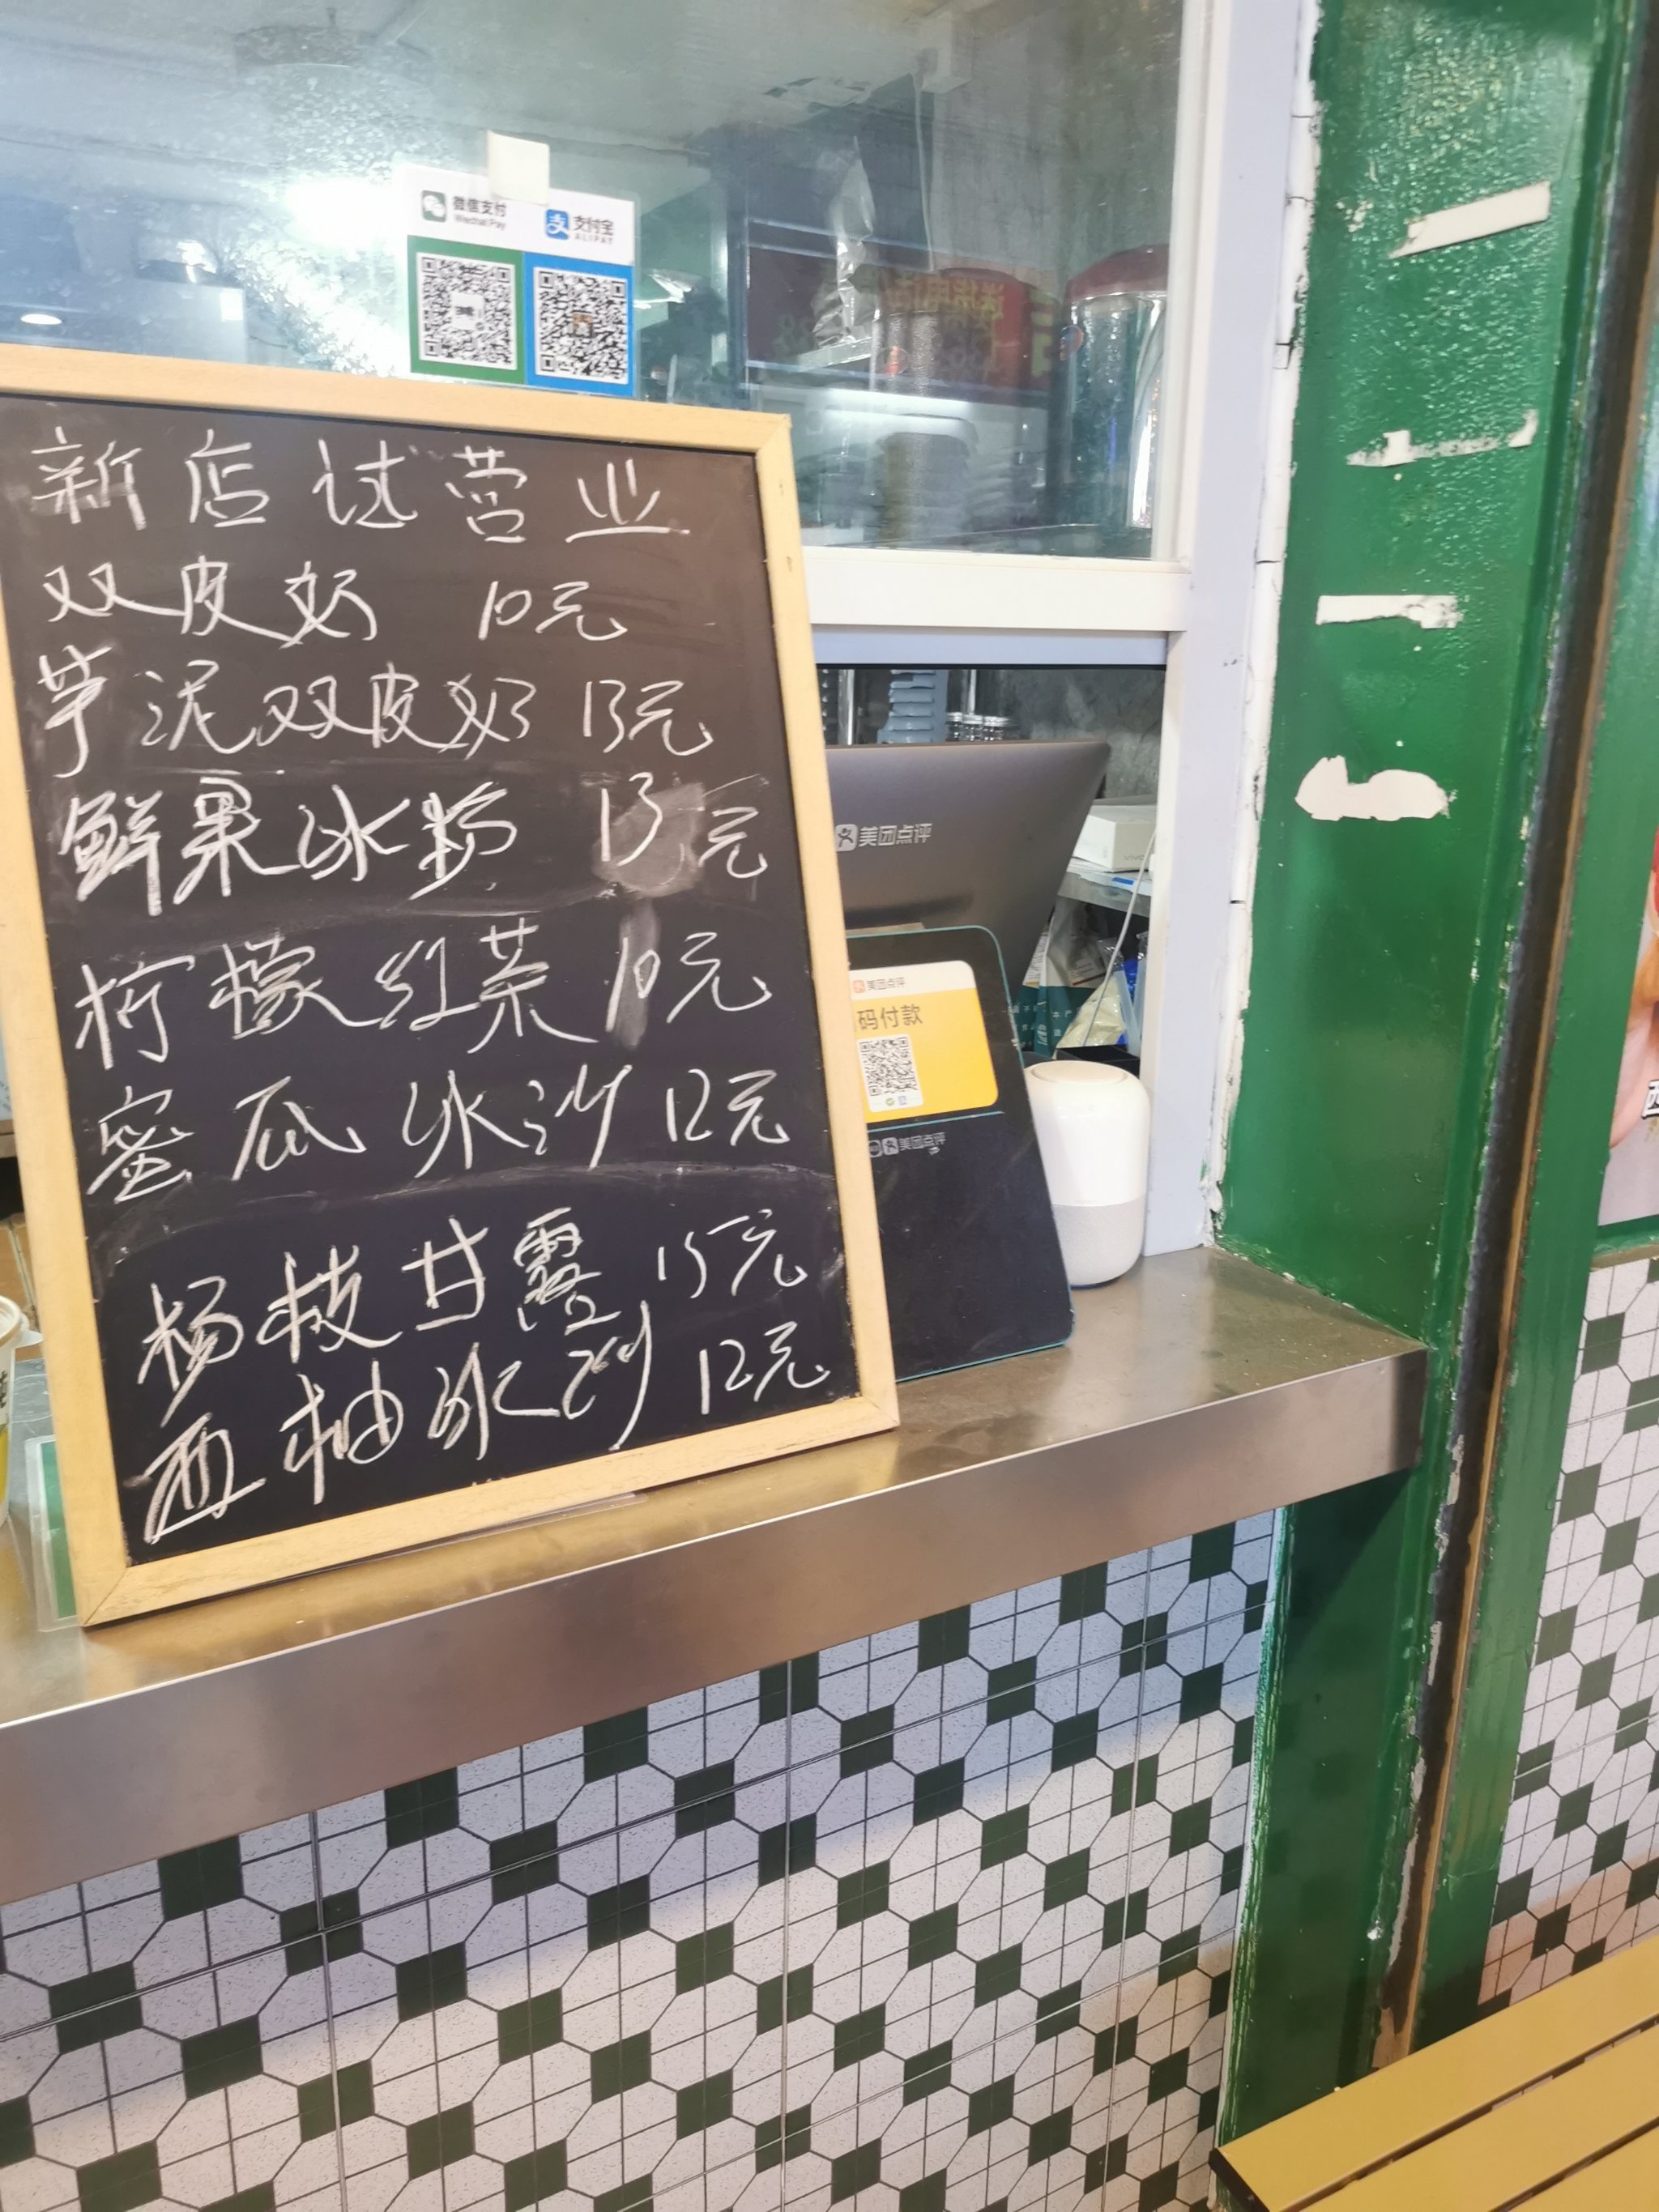 微信支付 支付宝
Wechat Pay ALIPAY
新店试营业
双皮奶 10元
芋泥双皮奶 13元
鲜果冰粉 13元
柠檬红茶 10元
蜜瓜冰沙 12元
杨枝甘露 15元
西柚冰沙 12元
美团点评
美团点评
码付款
美团点评
vivo
西